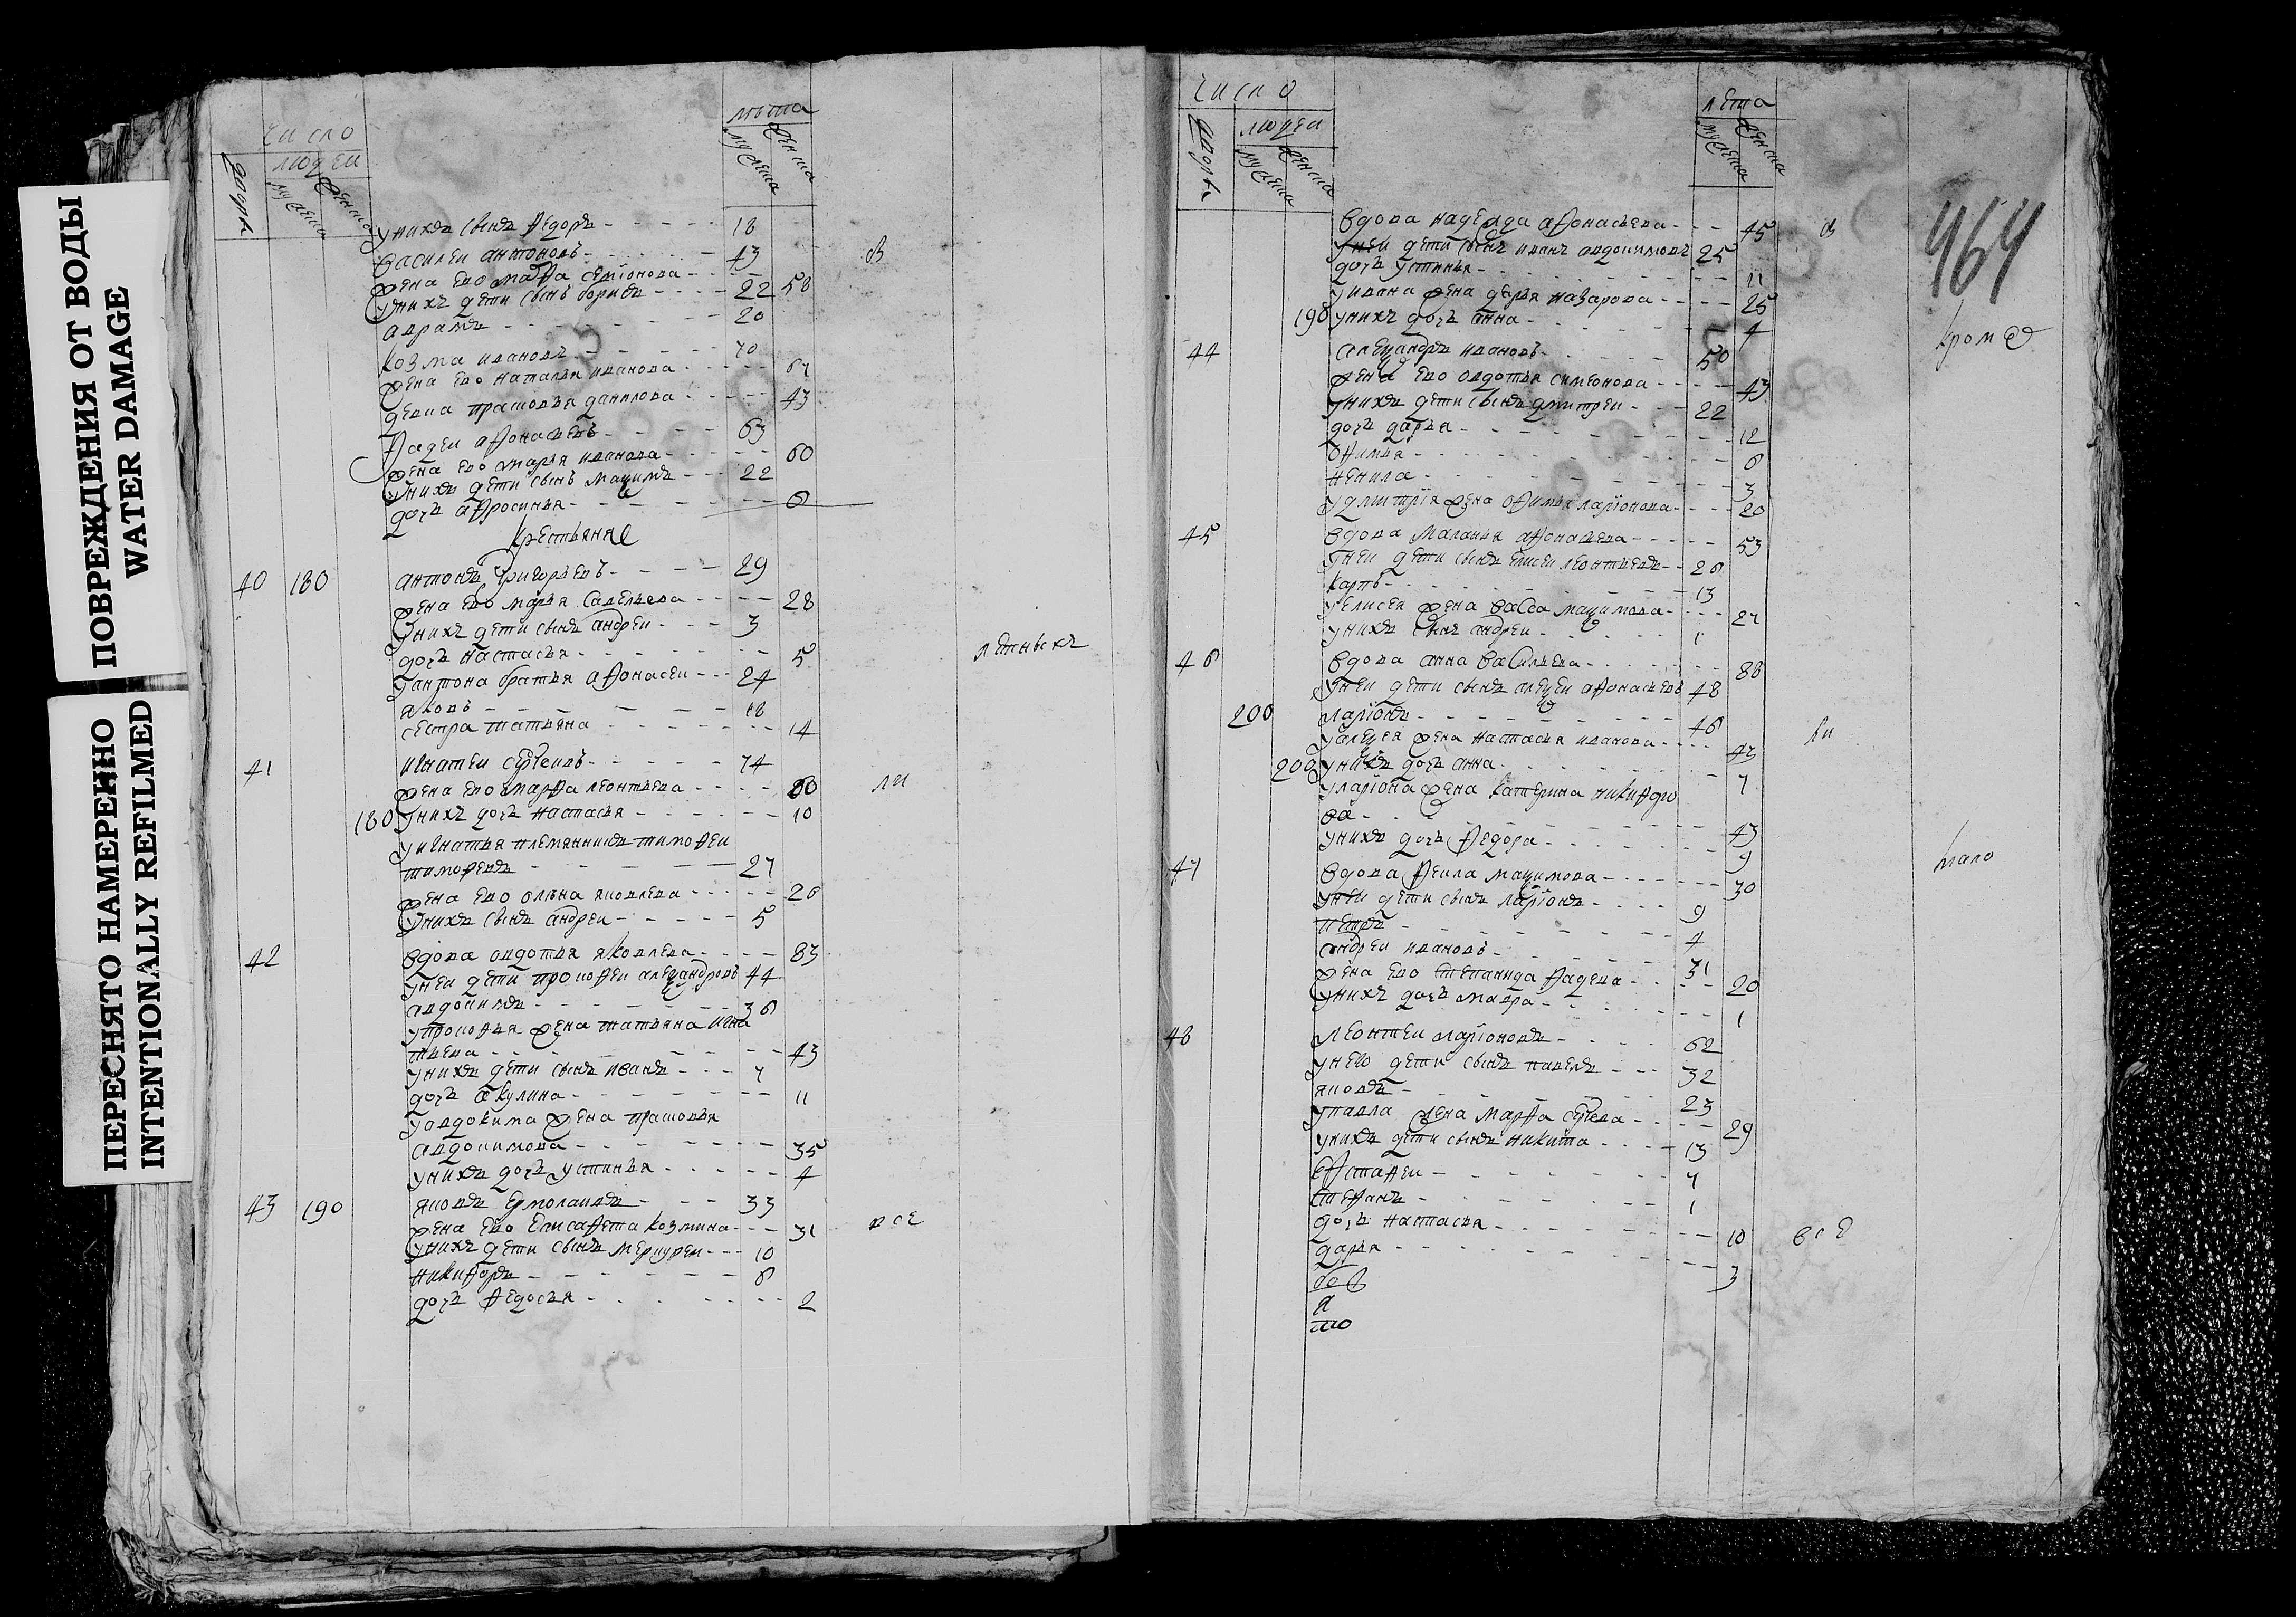 ПОВРЕЖДЕНИЯ ОТ ВОДЫ
WATER DAMAGE
ПЕРЕСНЯТО НАМЕРЕННО
INTENTIONALLY REFILMED
число
людеи
мужеска
женска
лѣта
мужеска
женска
унихъ сынъ Ѳедоръ 18
василеи антоновъ 43
жена ево марѳа семионова 58
унихъ дети сынъ борисъ 22
аврамъ 20
козма ивановъ 70
жена ево наталья иванова 67
девка прасковья данилова 43
Ѳадеи аѳонасьевъ 63
жена ево марья иванова 60
унихъ дети сынъ максимъ 22
дочь аѳросинья 6
крестьяня
40 180 антонъ григорьевъ 29
жена ево марья савельева 28
унихъ дети сынъ андреи 3
дочь настасья 5
уантона братья аѳонасеи 24
яковъ 18
сестра татьяна 14
41 игнатеи сергеивъ 74
жена ево марѳа леонтьева 60 ли
180 унихъ дочь настасья 10
уигнатья племянникъ тимоѳеи
тимоѳеевъ 27
жена ево олѣна яковлева 26
унихъ сынъ андреи 5
42 вдова овдотья яковлева 83
унеи дети прокоѳеи александровъ 44
авдокимъ 36
упрокоѳья жена татьяна игна
тьева 43
унихъ дети сынъ иванъ 7
дочь акулина 11
уавдокима жена прасковья
авдокимова 35
унихъ дочь устинья 4
43 190 яковъ ермолаивъ 33
жена ево елисавета козмина 31 все
унихъ дети сынъ меркуреи 10
никиѳоръ 6
дочь Ѳедосья 2
число
дворы
людеи
мужеска
женска
лета
мужеска
женска
464
вдова надежда аѳонасьева 45 в
унеи дети сынъ иванъ авдокимовъ 25
дочь устинья 11
уивана жена дарья назарова 25
190 унихъ дочь анна 4
44 александръ ивановъ 50
жена ево овдотья симеонова 43
унихъ дети сынъ дмитреи 22
дочь дарья 12
оѳимья 6
ненила 3
удмитрия жена оѳимья ларионова 20
45 вдова маланья аѳонасьева 53
унеи дети сынъ елисеи леонтьевъ 26
карпъ 13
уелисея жена васса максимова 27
унихъ сынъ андреи 1
46 вдова анна васильева 88
унеи дети сынъ алексеи аѳонасьевъ 48
200 ларионъ 46
уалексея жена настасья иванова 47
200 унихъ дочь анна 7
улариона жена катерина никиѳоро
ва 43
унихъ дочь Ѳедора 9
47 вдова Ѳекла максимова 30
унеи дети сынъ ларионъ 9
петръ 4
андреи ивановъ 31
жена ево степанида Ѳадеева 20
унихъ дочь мавра 1
48 леонтеи ларионовъ 62
унего дети сынъ павелъ 32
яковъ 23
упавла жена марѳа сергева 29
унихъ дети сынъ никита 13
естаѳеи 7
стеѳанъ 1
дочь настасья 10 все
дарья 3